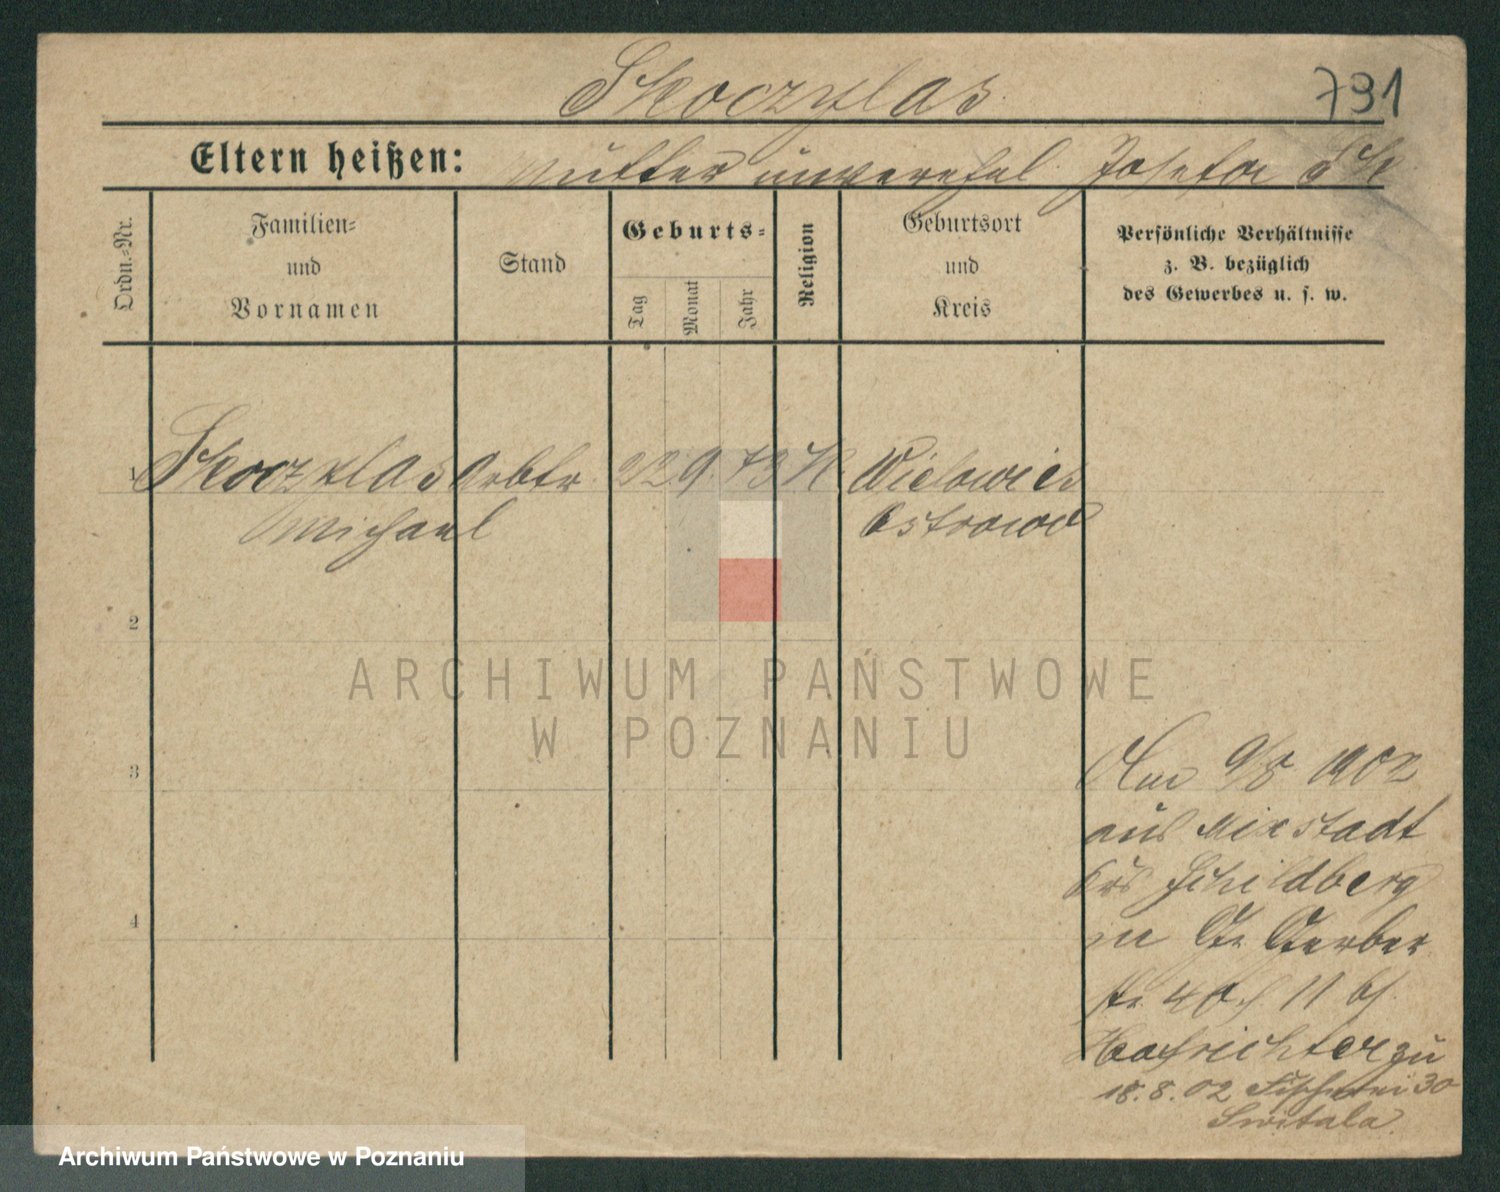 Skoczylas
791
Eltern heißen: Mutter unverehel. Josefa Sk
Ordn.-Nr.
Familien-
und
Vornamen
Stand
Geburts-
Tag
Monat
Jahr
Religion
Geburtsort
und
Kreis
Persönliche Verhältnisse
z. B. bezüglich
des Gewerbes u. s. w.
1 Skoczylas Arbtr 22 9. 73 K. Wielowies
Michael Ostrowo
2
3
4
Am 9/8 1902
aus Mixstadt
Krs Schildberg
in Gr. Gerber
str 40 II bj
zu
18.8.02 Fischerei 30
Switala
ARCHIWUM PAŃSTWOWE
W POZNANIU
Archiwum Państwowe w Poznaniu